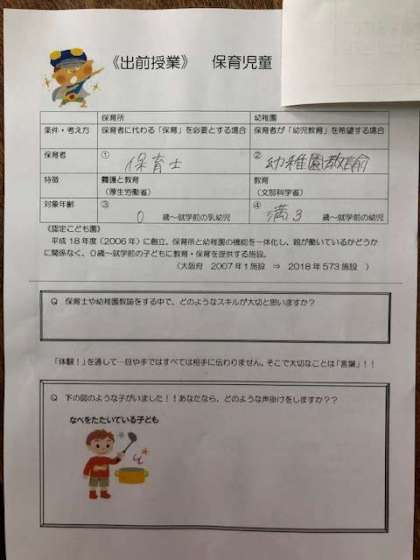 《出前授業》　保育児童
保育所　幼稚園
条件・考え方　保育者に代わる「保育」を必要とする場合　保育者が「幼児教育」を希望する場合
保育者　①　保育士　②　幼稚園教諭
特徴　養護と教育　教育
（厚生労働省）　（文部科学省）
対象年齢　③　0　歳〜就学前の乳幼児　④　満3　歳〜就学前の幼児
《認定こども園》
平成18年度（2006年）に創立。保育所と幼稚園の機能を一体化し、親が働いているかどうか
に関係なく、0歳〜就学前の子どもに教育・保育を提供する施設。
（大阪府　2007年1施設　⇒　2018年573施設　）
Q　保育士や幼稚園教諭をする中で、どのようなスキルが大切と思いますか？？
「体験！」を通して…目や手ではすべては相手に伝わりません。そこで大切なことは「言葉」！！
Q　下の図のような子がいました！！あなたなら、どのような声掛けをしますか？？
なべをたたいている子ども